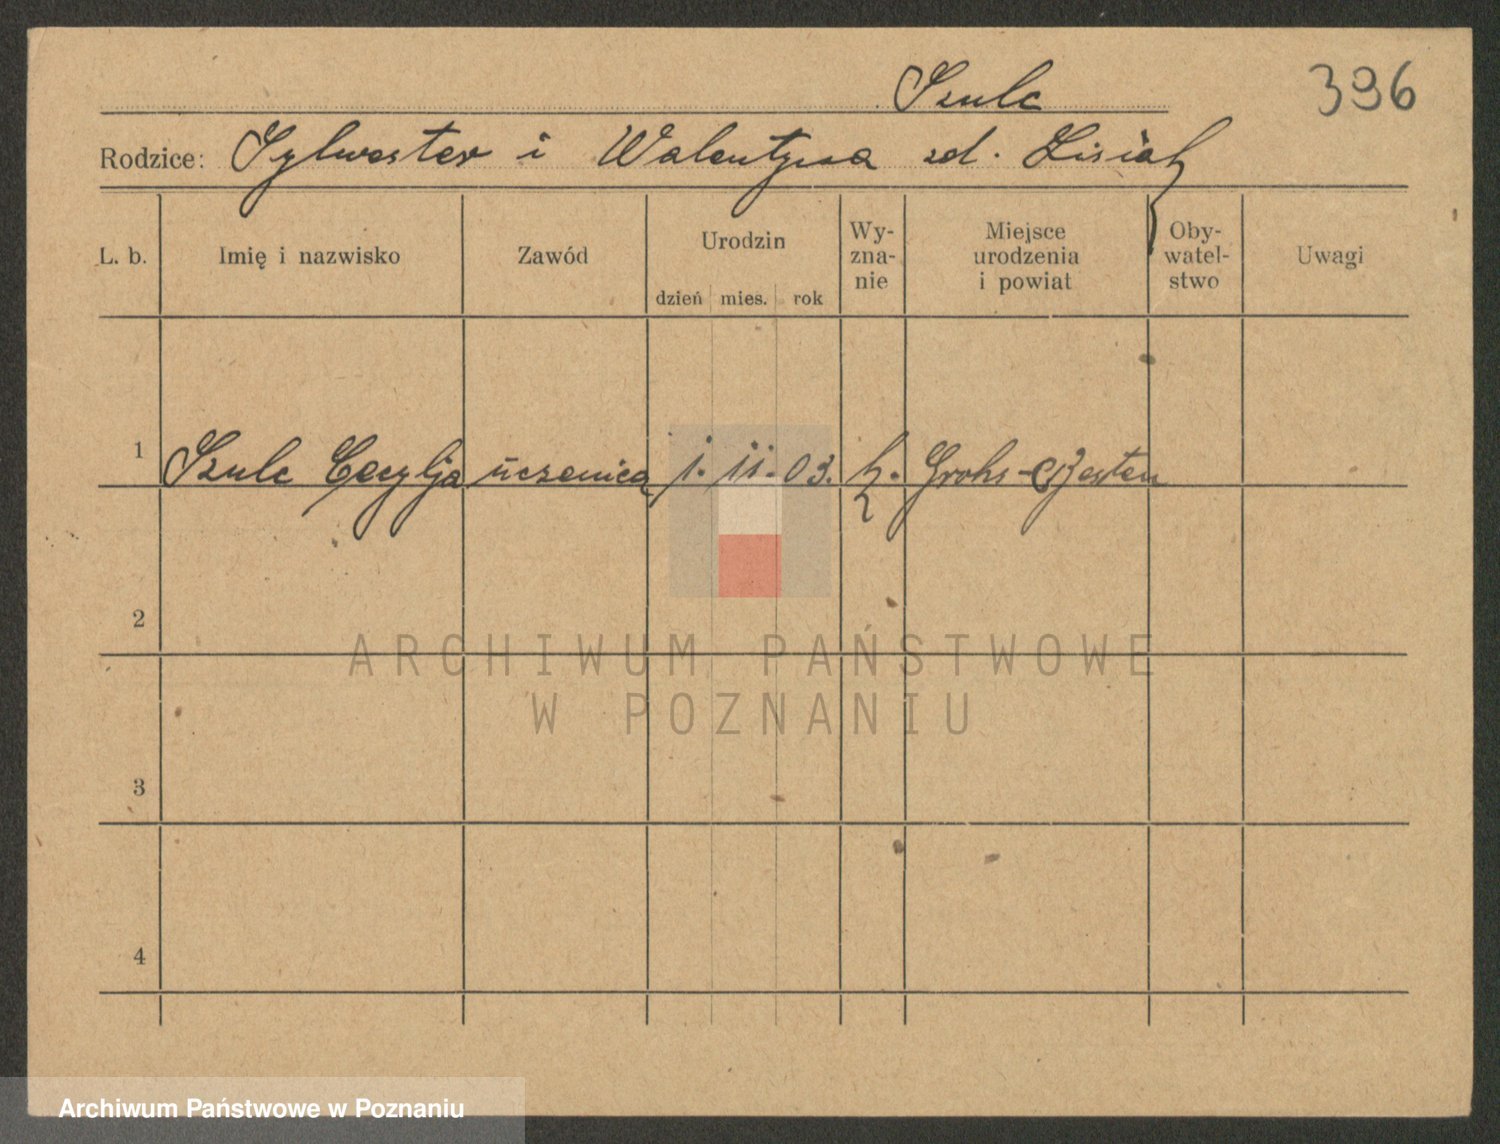 Szulc
396
Rodzice: Sylwester i Walentyna zd. Lisiak
L. b.
Imię i nazwisko
Zawód
Urodzin
dzień mies. rok
Wy-
zna-
nie
Miejsce
urodzenia
i powiat
Oby-
watel-
stwo
Uwagi
1 Szulc Cecylja uczenica 1. 11. 03. k. Grohs-
2
3
4
ARCHIWUM PAŃSTWOWE
W POZNANIU
Archiwum Państwowe w Poznaniu